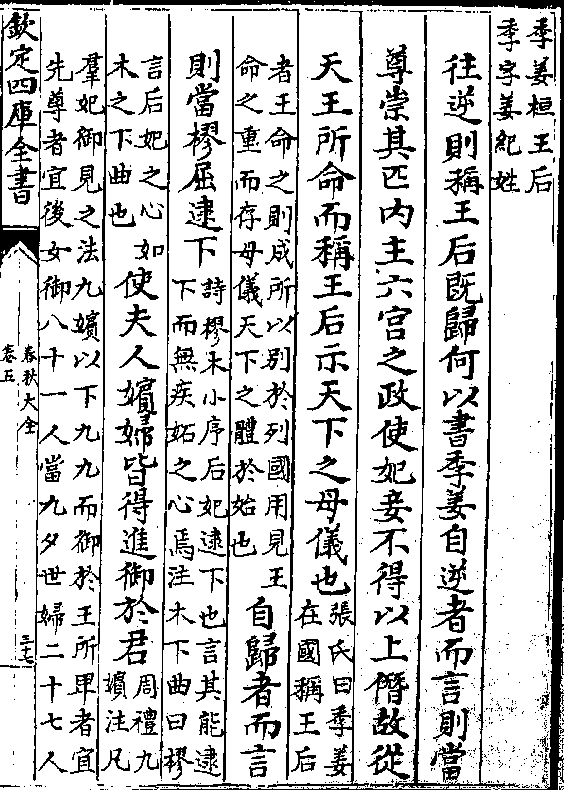 季姜桓王后
季字姜紀姓
往逆則稱王后既歸何以書季姜自逆者而言則當
尊崇其匹内主六宫之政使妃妾不得以上僭故從
天王所命而稱王后示天下之母儀也
張氏曰季姜
在國稱王后
者王命之則成所以别於列國用見王
命之重而存母儀天下之體於始也
自歸者而言
則當樛屈逮下
詩樛木小序后妃逮下也言其能逮
下而無疾妬之心焉注木下曲曰樛
言后妃之心如
木之下曲也
使夫人嬪婦皆得進御於君
周禮九
嬪注凡
羣妃御見之法九嬪以下九九而御於王所卑者宜
先尊者宜後女御八十一人當九夕世婦二十七人
欽定四庫全書
春秋大全
卷五
三十七